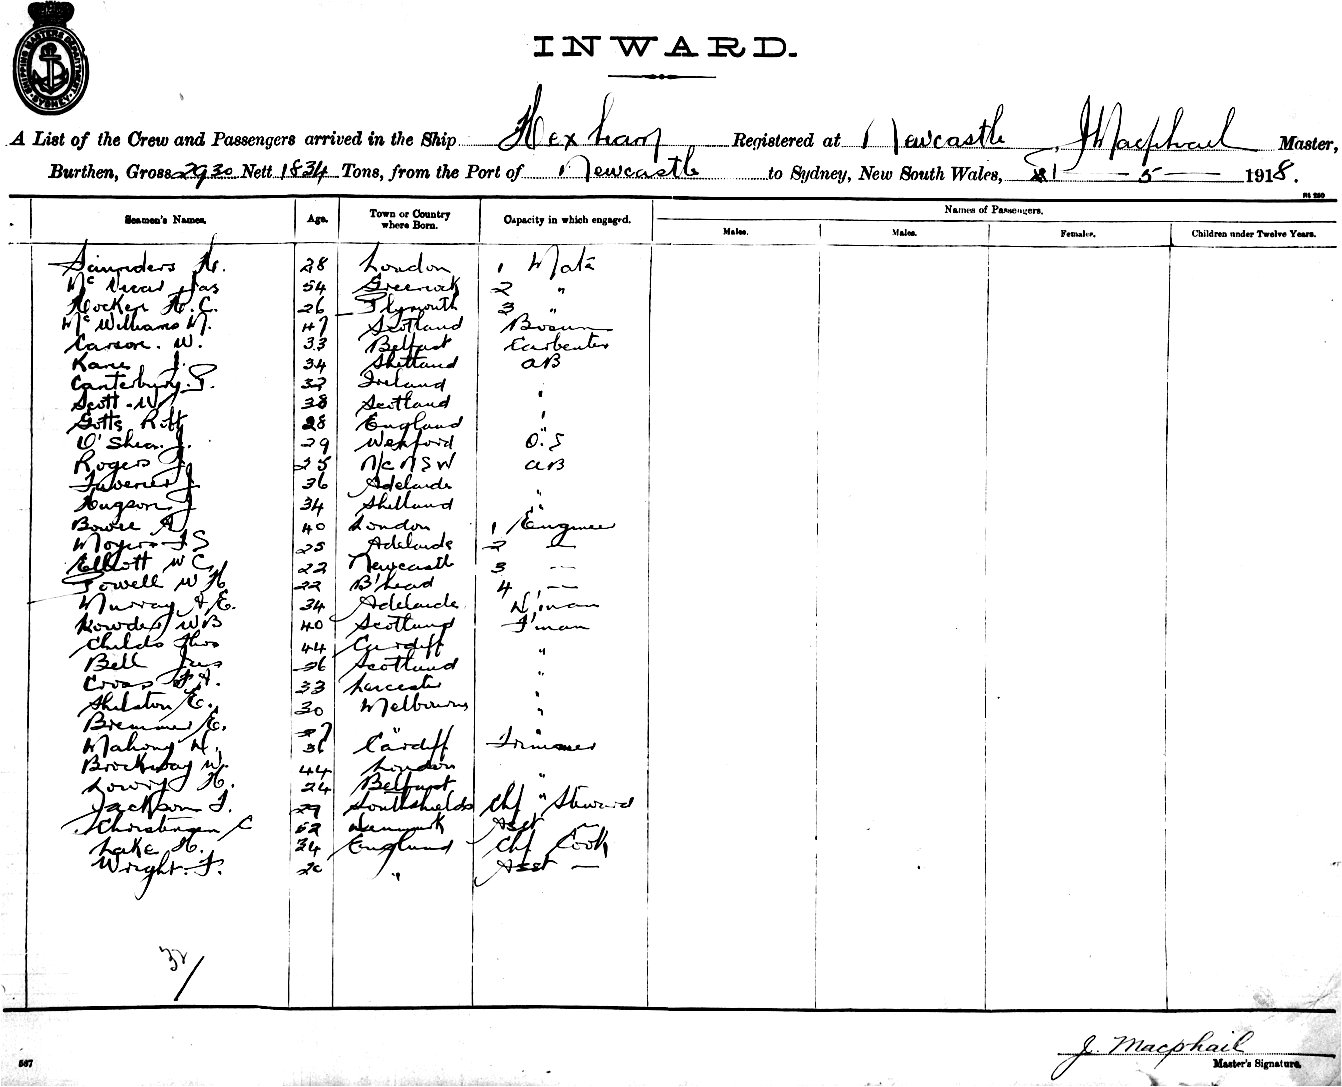 SHIPPING MASTERS DEPARTMENT SYDNEY
INWARD.
A List of the Crew and Passengers arrived in the Ship Hexham Registered at Newcastle J Macphail Master,
Burthen, Gross 2930 Nett 1834 Tons, from the Port of Newcastle to Sydney, New South Wales, 31 - 5 - 1918.
Seamen's Names. Age. Town or Country where Born. Capacity in which engaged. Names of Passengers.
Males. Males. Females. Children under Twelve Years.
Saunders H. 28 London 1 Mate
Mc Vicar Jas 54 Greenock 2 "
Hocken H. C. 26 Plymouth 3 "
Mc Williams M. 47 Scotland Bosun
Carson. W. 33 Belfast Carpenter
Kane J. 34 Shetland AB
Canterbury. P. 32 Ireland
Scott. W 38 Scotland "
Gotts Robt 28 England "
O'Shea. J. 29 Wexford O.S
Rogers J. 25 N/c NSW AB
Taverner J 36 Adelaide
Hugson J 34 Shetland "
Bowie A 40 London 1 Engineer
Moyers J S 25 Adelaide 2 —
Elliott W C 22 Newcastle 3 —
Powell W H 22 B'head 4 —
Murray A E. 34 Adelaide D'man
Kowdes W B 40 Scotland F'man
Childs Thos 44 Cardiff "
Bell Jas 36 Scotland "
Cross F A. 33 Leicester "
Shelston E. 30 Melbourne "
Bremmer E. 27 " "
Mahony D. 36 Cardiff Trimmer
Brockway W. 44 London "
Lowry H. 24 Belfast "
Jackson T. 29 Southshields Chf Steward
Christensen C 52 Denmark Asst —
Lake H. 34 England Chf Cook
Wright. F. 20 " Asst —
32/
J. Macphail
567 Master's Signature.